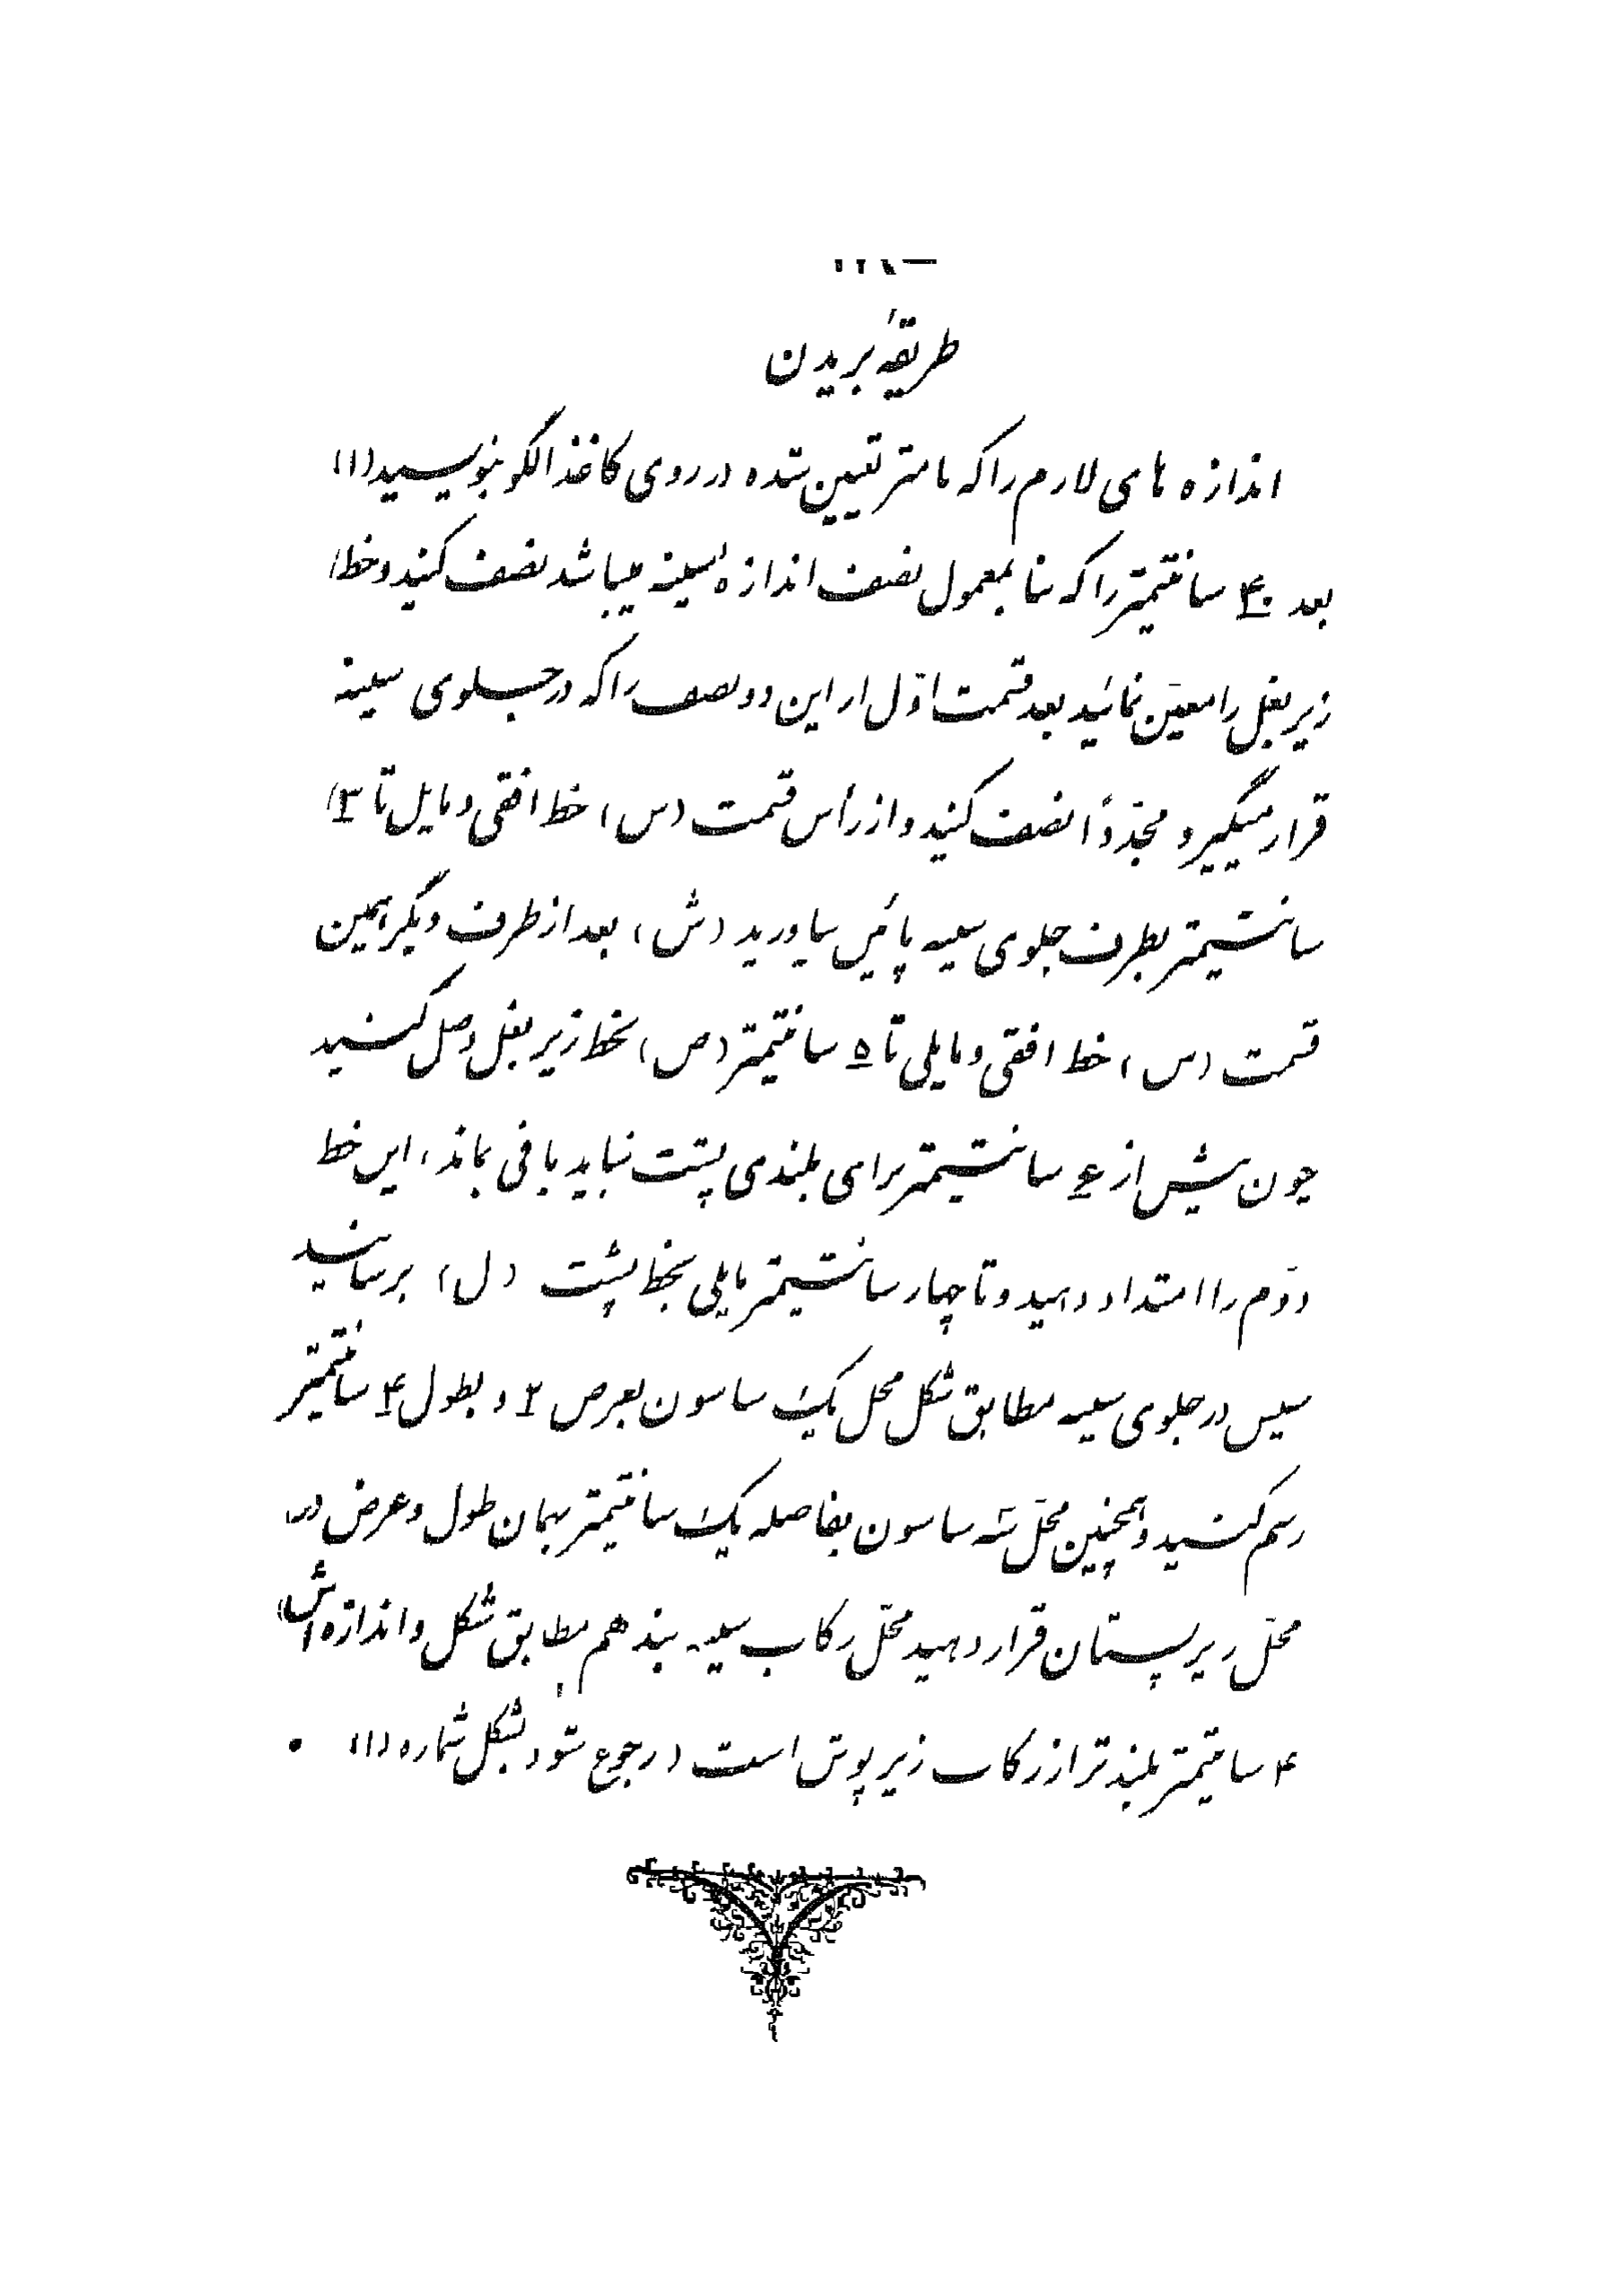 طریقهٔ بریدن
اندازه های لازم را که با متر تعیین شده در روی کاغذ الگو بنویسید (۱)
بعد ۴۰ سانتیمتر را که بنا بمعمول نصف اندازه سینه میباشد نصف کنید و خط (
زیر بغل را معین نمائید بعد قسمت اوّل از این دو نصف را که در جلوی سینه
قرار میگیرد مجدّداً نصف کنید و از رأس قسمت (س) خط افقی و مایل تا ۳)
سانتیمتر بطرف جلوی سینه پائین بیاورید (ش) بعد از طرف دیگر همین
قسمت (س) خط افقی و مایلی تا ۵ سانتیمتر (ص) بخط زیر بغل وصل کنید
چون بیش از ۴ سانتیمتر برای بلندی پشت نباید باقی بماند، این خط
دوّم را امتداد دهید و تا چهار سانتیمتر مایلی بخط پشت (ل) برسانید
سپس در جلوی سینه مطابق شکل محل یک ساسون بعرض ۲ و بطول ۴ سانتیمتر
رسم کنید و همچنین محلّ سه ساسون بفاصله یک سانتیمتر بهمان طول و عرض در
محلّ زیر پستان قرار دهید محلّ رکاب سینه بند هم مطابق شکل و اندازه اش
۴ سانتیمتر بلندتر از رکاب زیر پوش است (رجوع شود بشکل شماره (۱)) •